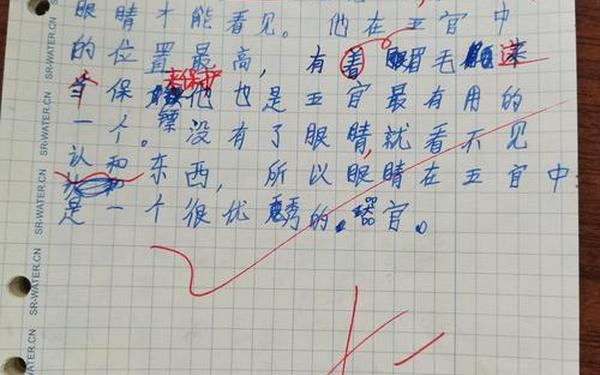 眼睛才能看见。他在五官中
的位置最高，有着眼眉毛
来保护
当保镖他也是五官最有用的
一个。没有了眼睛，就看不见
认和东西，所以眼睛在五官中
是一个很优秀的器官。
SR-WATER.CN
SR-WATER.CN
SR-WATER.CN